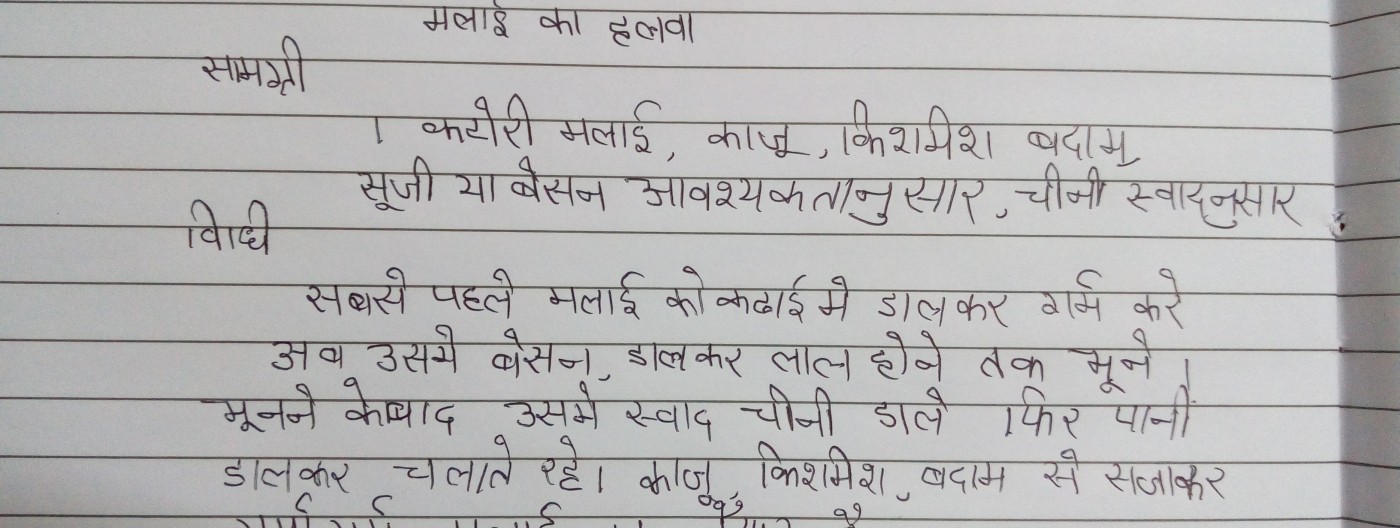 मलाई का हलवा
सामग्री
1 कटोरी मलाई, काजू, किशमिश बदाम,
सूजी या बेसन आवश्यकतानुसार, चीनी स्वादनुसार
विधि
सबसे पहले मलाई को कढाई मे डालकर गर्म करे
अब उसमे बेसन, डालकर लाल होने तक भूने।
भूनने के बाद उसमे स्वाद चीनी डाले फिर पानी
डालकर चलाते रहे। काजू, किशमिश, बदाम से सजाकर